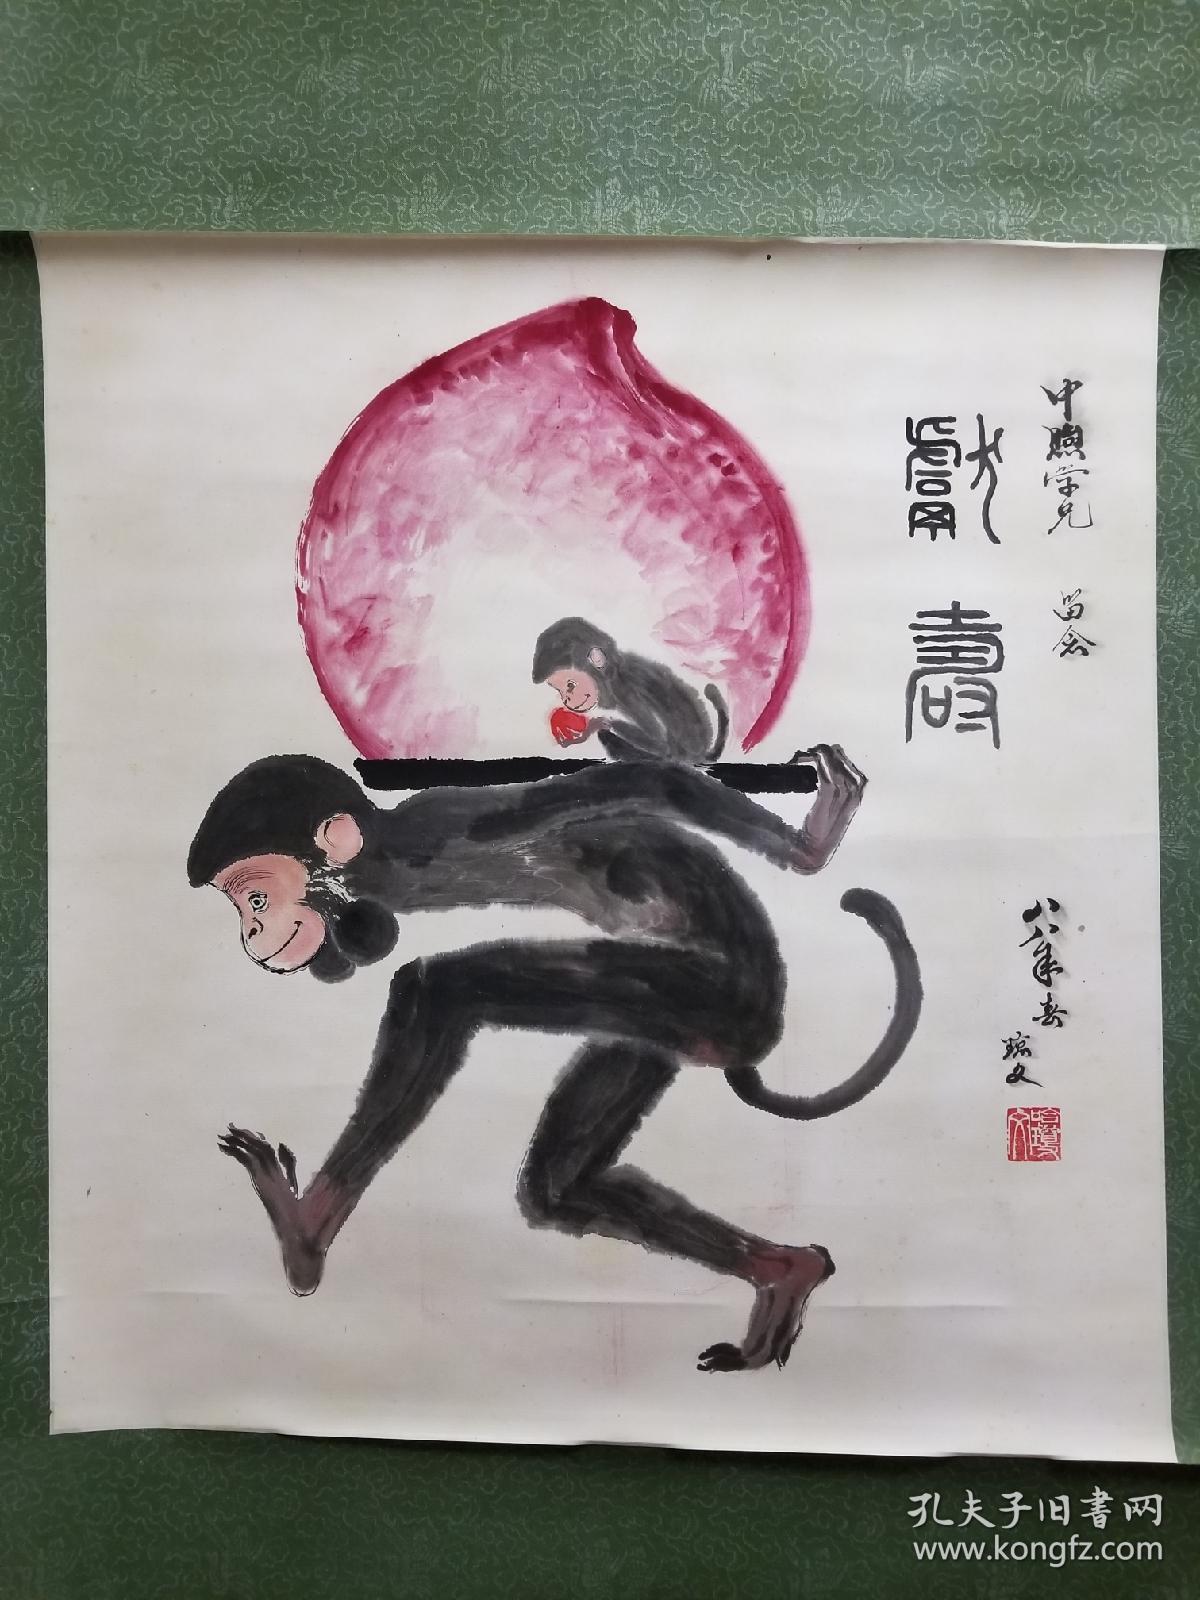 中煦学兄 留念
献寿
八八年春
琼文
孔夫子旧书网
www.kongfz.com